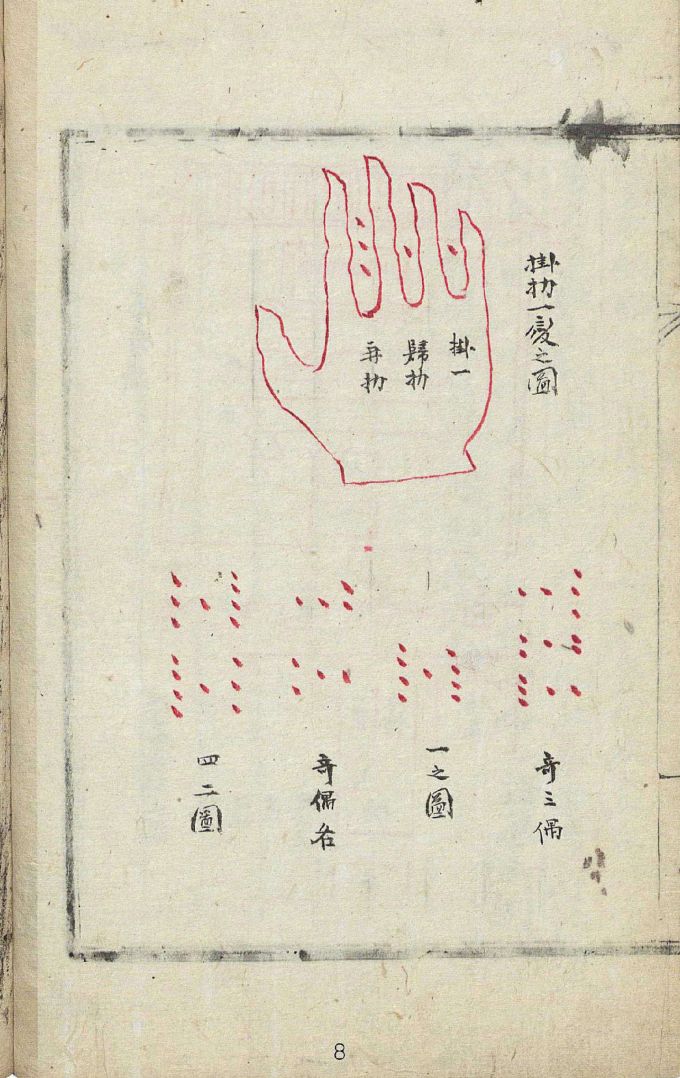 掛扐一變之圖
掛一
歸扐
再扐
奇三偶
一之圖
奇偶各
四二圖
8